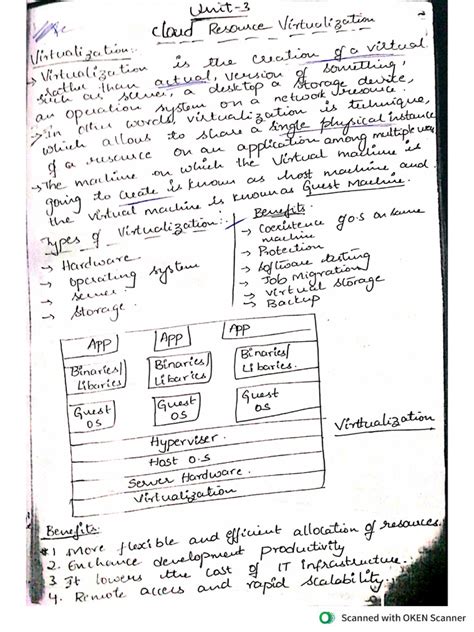 Unit-3
Cloud Resource Virtualization
Virtualization:-
→ Virtualization is the creation of a virtual
rather than actual, version of something,
such as a server, a desktop a storage device,
an operation system on a network resource.
→ In other words, virtualization is technique,
which allous to share a single physical instance
of a resource on an application among multiple
→ The machine on which the Virtual machine is
going to create is known as host machine and
the virtual machine is known as Guest Machine.
Types of Virtualization:-
→ Hardware
→ operating system
→ server
→ storage.
Benefits:-
→ Coexistence of O.S on same
machine
→ Protection
→ software testing
→ Job Migration
→ virtual storage
→ Backup
App App App
Binaries/ Binaries/ Binaries/
Libaries Libaries Libaries.
Guest Guest Guest
OS OS OS
Hyperviser.
Host O.S
Server Hardware.
Virtualization
Virtualization
Benefits:
1 More flexible and efficient allocation of resources.
2. Enchance development productivity
3 It lowers the cost of IT infrastructure.
4. Remote access and rapid scalability.
Scanned with OKEN Scanner